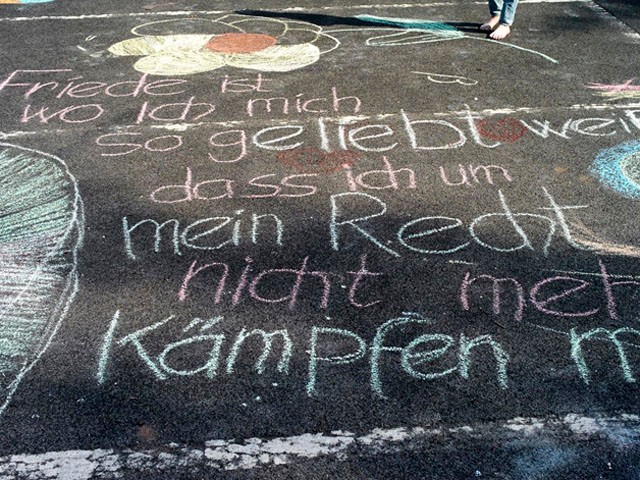 Friede ist
wo Ich mich
so geliebt
dass Ich um
mein Recht
nicht meh
Kämpfen m